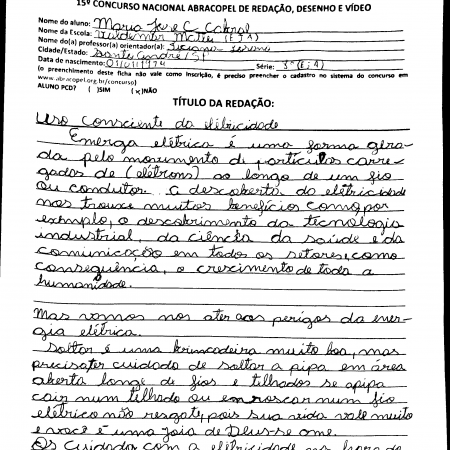 15º CONCURSO NACIONAL ABRACOPEL DE REDAÇÃO, DESENHO E VÍDEO
Nome do aluno: Maria José C Cabral
Nome da Escola: Valdemar Mattei (E J A)
Nome do(a) professor(a) orientador(a):
Cidade/Estado: Santo André/SP
Data de nascimento: 01/01/1974 Série: 3º (E J A)
(o preenchimento desta ficha não vale como inscrição, é preciso preencher o cadastro no sistema do concurso em
www.abracopel.org.br/concurso)
ALUNO PCD? ( )SIM (x)NÃO
TÍTULO DA REDAÇÃO:
Uso Consciente da eletricidade
Emergia elétrica é uma forma gera-
da pelo movimento di particulas carre-
gadas de (elétrons) ao longo de um fio
ou condutor. a descoberta da eletricidade
nos trouxe muitos benefícios como por
exemplo, o descobrimento da tecnologia
industrial, da ciência da saúde e da
comunicação em todos os setores, como
consequência, o crescimento de toda a
humanidade.
Mas vamos nos ater aos perigos da ener-
gia elétrica.
Soltar é uma brincadeira muito boa, mas
precisa ter cuidado de soltar a pipa em área
aberta longe de fios e tilhados se apipa
cair num tilhado ou enroscar num fio
elétrico não resgate, pois sua vida vale muito
e você é uma joia de Deus-se ame.
Os Cuidado com a eletricidade na hora de